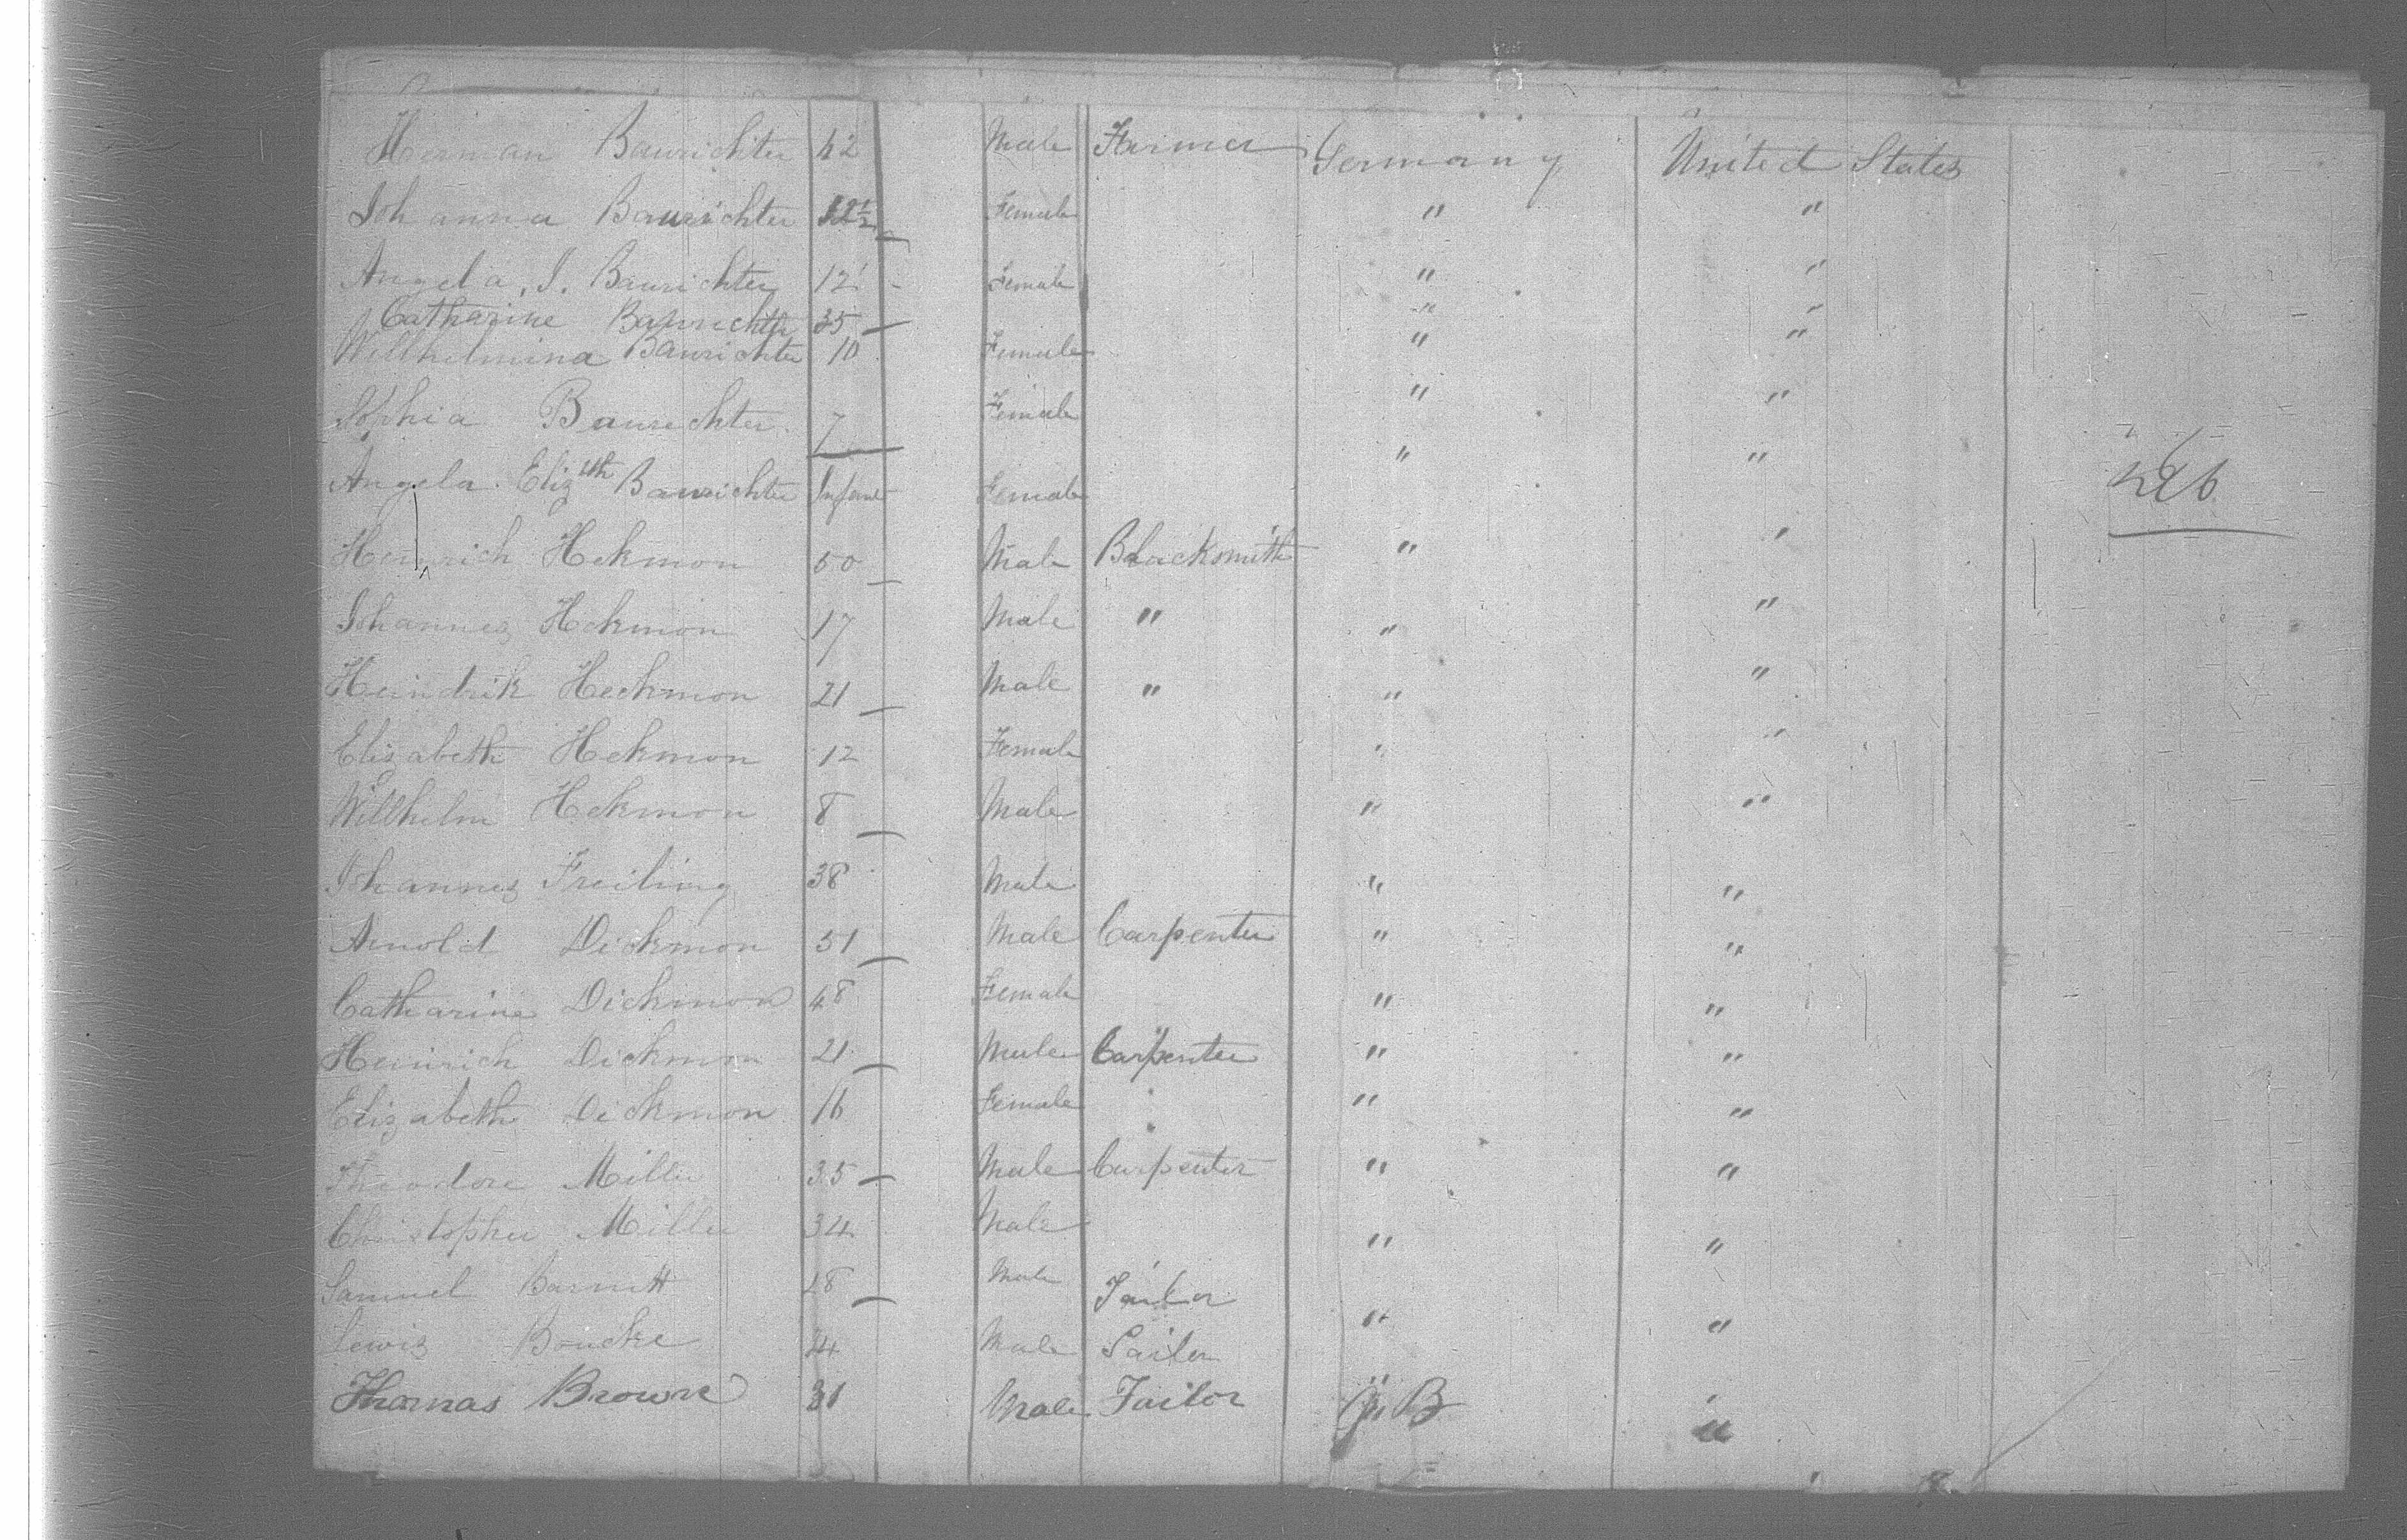 Herman Baurichter 42 Male Farmer Germany United States
Johanna Baurichter Female " "
Angela. J. Baurichter 12 Female " "
Catharine Baurichter 35 " "
Willhelmina Baurichter 10 Female " "
Sophia Baurichter 7 Female " "
Angela Elizth Baurichter Infant Female " "
Heinrich Hekmon 50 Male Blacksmith " "
Johannes Hekmon 17 Male " " "
Heindrik Heckmon 21 Male " " "
Elizabeth Hekmon 12 Female " "
Willhelm Hekmon 8 Male " "
Johannes Freiling 38 Male " "
Arnold Dickmon 51 Male Carpenter " "
Catharine Dickmon 48 Female " "
Heinrich Dickmon 21 Male Carpenter " "
Elizabeth Dickmon 16 Female " "
Theodore Miller 35 Male Carpenter " "
Christopher Miller 34 Male " "
Samuel Barnett 28 Male Tailor " "
Lewis Boucke Male " "
Thomas Brown 31 Male Tailor G. B "